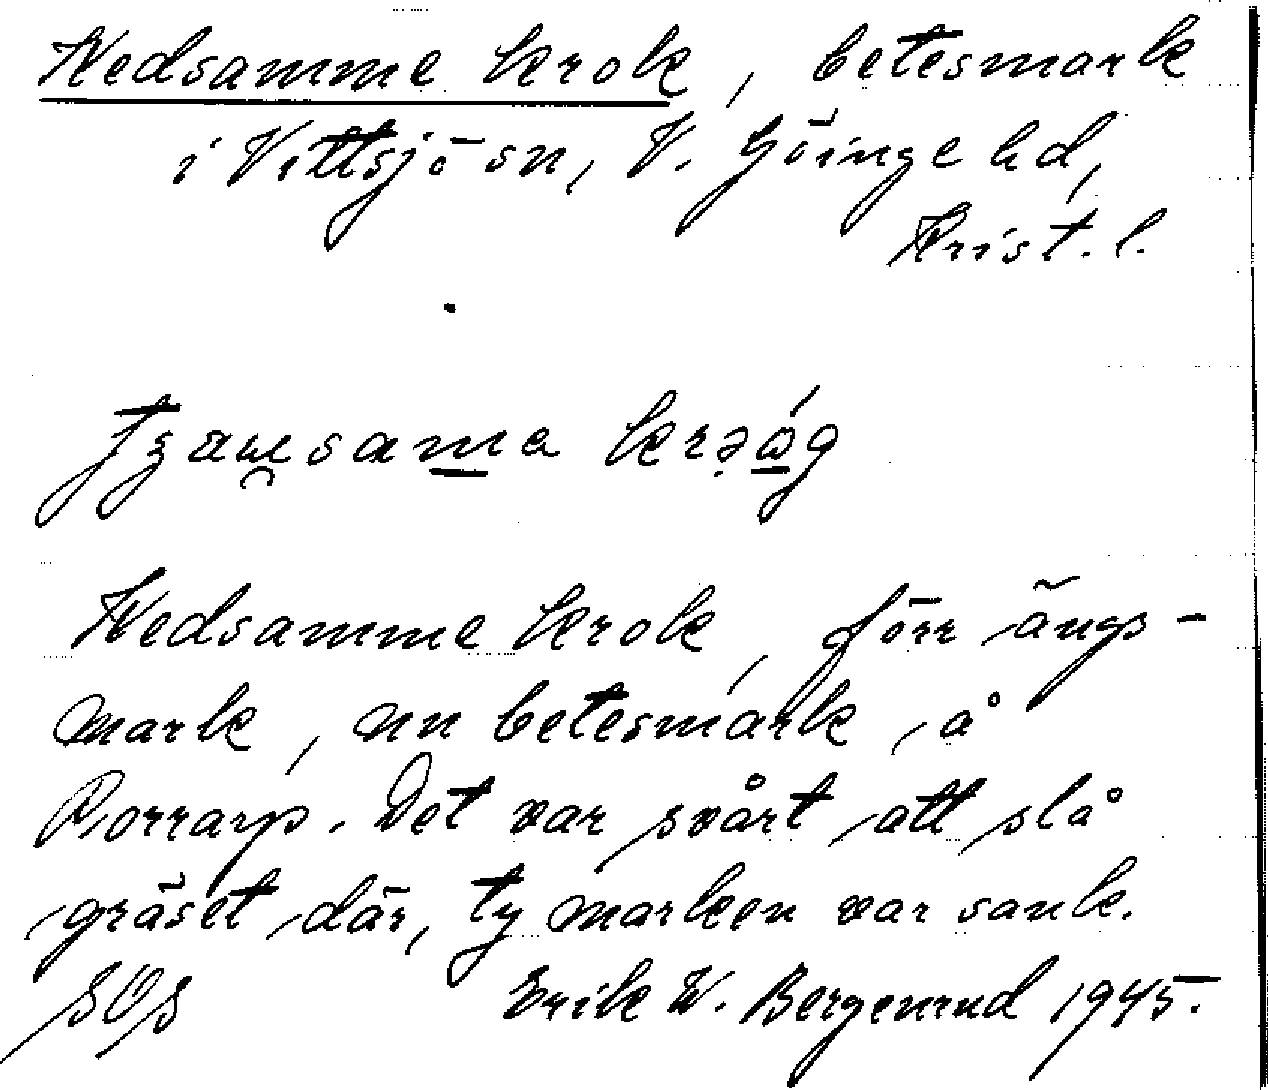 Kedsamme krok, betesmark
i Vittsjö sn, V. Göinge hd,
Krist. l.
Kedsamme krok, förr ängs-
mark, nu betesmark, å
Porrarp. Det var svårt att slå
gräset där, ty marken var sank.
SOS Erik W. Bergenrud 1945.